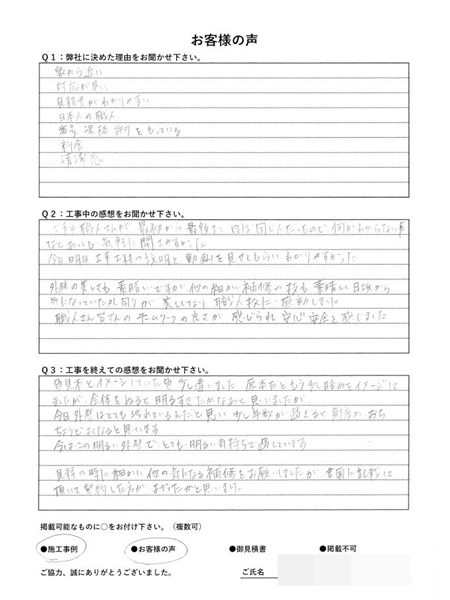 お客様の声
Q1：弊社に決めた理由をお聞かせ下さい。
家から近い
対応が良い
見積書がわかりやすい
日本人の職人
資格 をもっている
料金
清潔感
Q2：工事中の感想をお聞かせ下さい。
職人さんが 最初から最後まで 同じ人だったので 何かわからない事
などあっても 気軽に聞きやすかった
今日明日 工事 の説明と 動画を見せてもらい わかりやすかった
外壁の美しさも 素晴しいですが 他の細かい補修の技も 素晴しく 日頃から
気になっていた 回りが 美しくなり 職人技に 感動しました
職人さん皆さんの チームワークの良さが 感じられ 安心 安全と感じました
Q3：工事を終えての感想をお聞かせ下さい。
色見本とイメージしていた色 少し違いました 見本だともう少し暗めをイメージして
ましたが、全体をぬると 明るすぎたかなぁと思いましたが、
今日 外壁はとても 汚れているんだと思い 少し年数が過ぎると
ちょうどよくなると思います
今はこの明るい外壁で とても 明るい気持ちで過しています
見積の時に細かい 他の気になる 補修をお願いしましたが
頂いて 契約した方が よかったかなと思いました
掲載可能なものに〇をお付け下さい。（複数可）
●施工事例 ●お客様の声 ●御見積書 ●掲載不可
ご協力、誠にありがとうございました。 ご氏名